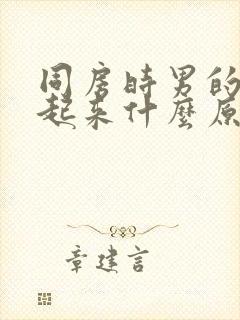 同房時男的
起来什麼原
章建言